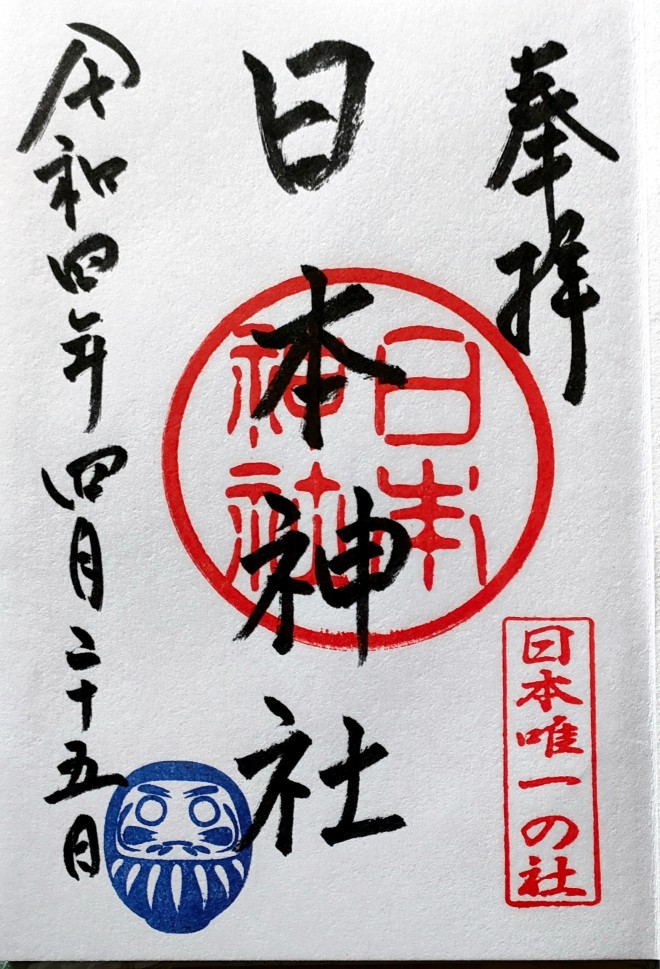 奉拝
日本唯一の社
日本神社
日本
神社
令和四年四月二十五日